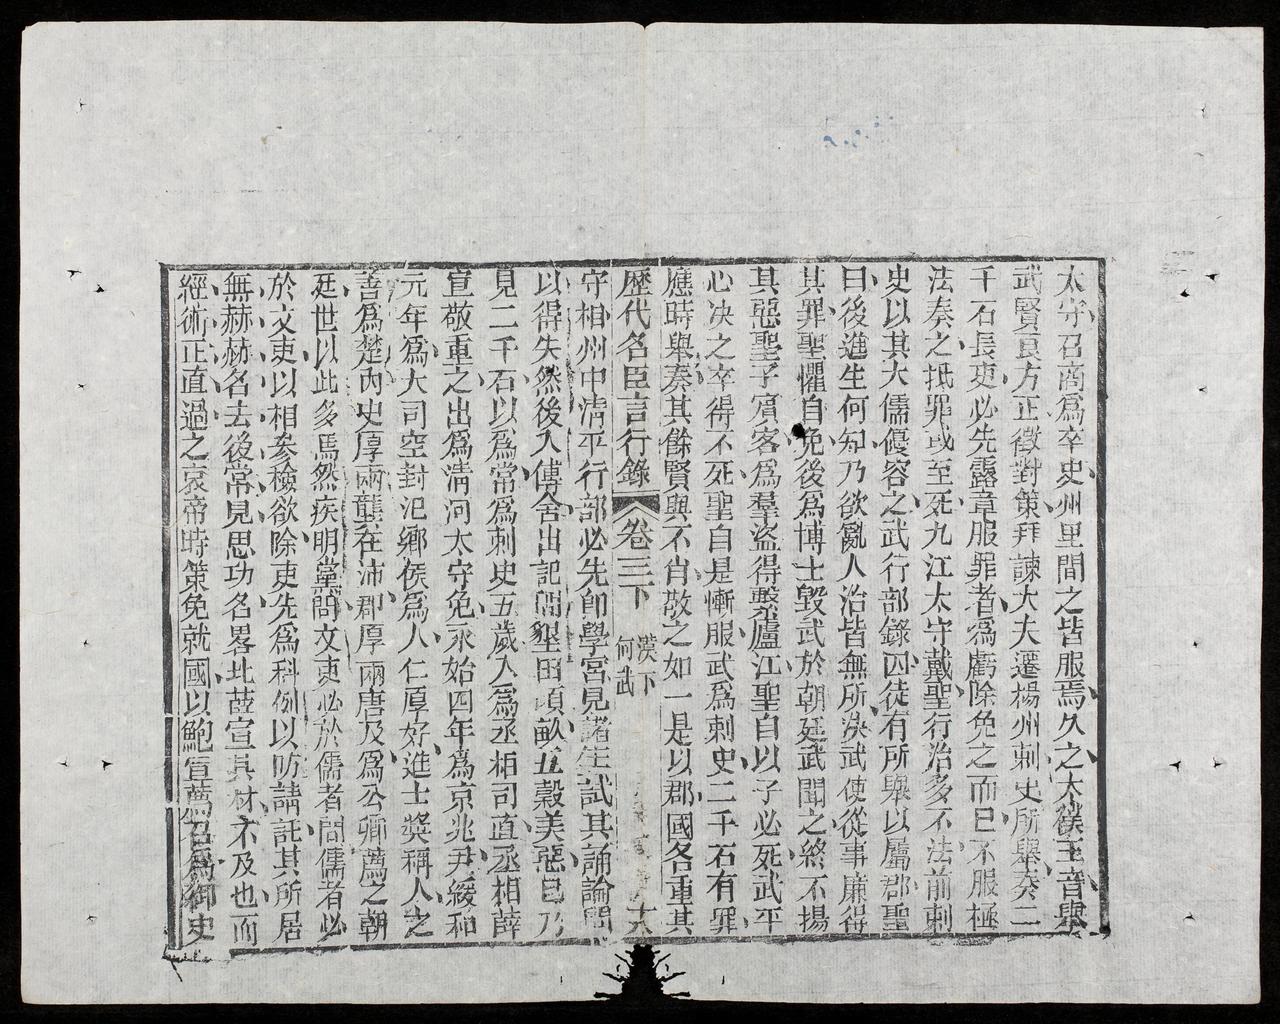 太守召商爲卒史州里間之皆服焉久之太僕王音舉
武賢良方正徵對策拜諫大夫遷楊州刺史所舉奏二
千石長吏必先露章服罪者爲虧除免之而已不服極
法奏之抵罪或至死九江太守戴聖行治多不法前刺
史以其大儒優容之武行部錄囚徒有所舉以屬郡聖
曰後進生何知乃欲亂人治皆無所決武使從事廉得
其罪聖懼自免後爲博士毀武於朝廷武聞之終不揚
其惡聖子賓客爲羣盜得繫廬江聖自以子必死武平
心决之卒得不死聖自是慚服武爲刺史二千石有罪
應時舉奏其餘賢與不肖敬之如一是以郡國各重其
歷代名臣言行錄 卷三下 漢下 何武 十六
守相州中清平行部必先卽學宮見諸生試其誦論問
以得失然後入傳舍出記問墾田頃畝五穀美惡已乃
見二千石以爲常爲刺史五歲入爲丞相司直丞相薛
宣敬重之出爲清河太守免永始四年爲京兆尹綏和
元年爲大司空封氾鄉侯爲人仁厚好進士奬稱人之
善爲楚內史厚兩龔在沛郡厚兩唐及爲公卿薦之朝
廷世以此多焉然疾朋黨問文吏必於儒者問儒者必
於文吏以相參檢欲除吏先爲科例以防請託其所居
無赫赫名去後常見思功名畧比薛宣其材不及也而
經術正直過之哀帝時策免就國以鮑宣薦召爲御史